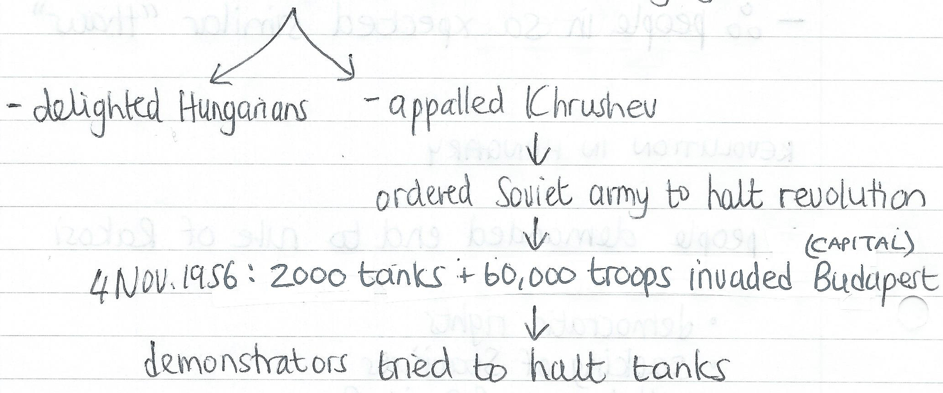 - delighted Hungarians - appalled Khrushev
ordered Soviet army to halt revolution
(CAPITAL)
4 NOV. 1956: 2000 tanks + 60,000 troops invaded Budapest
demonstrators tried to halt tanks